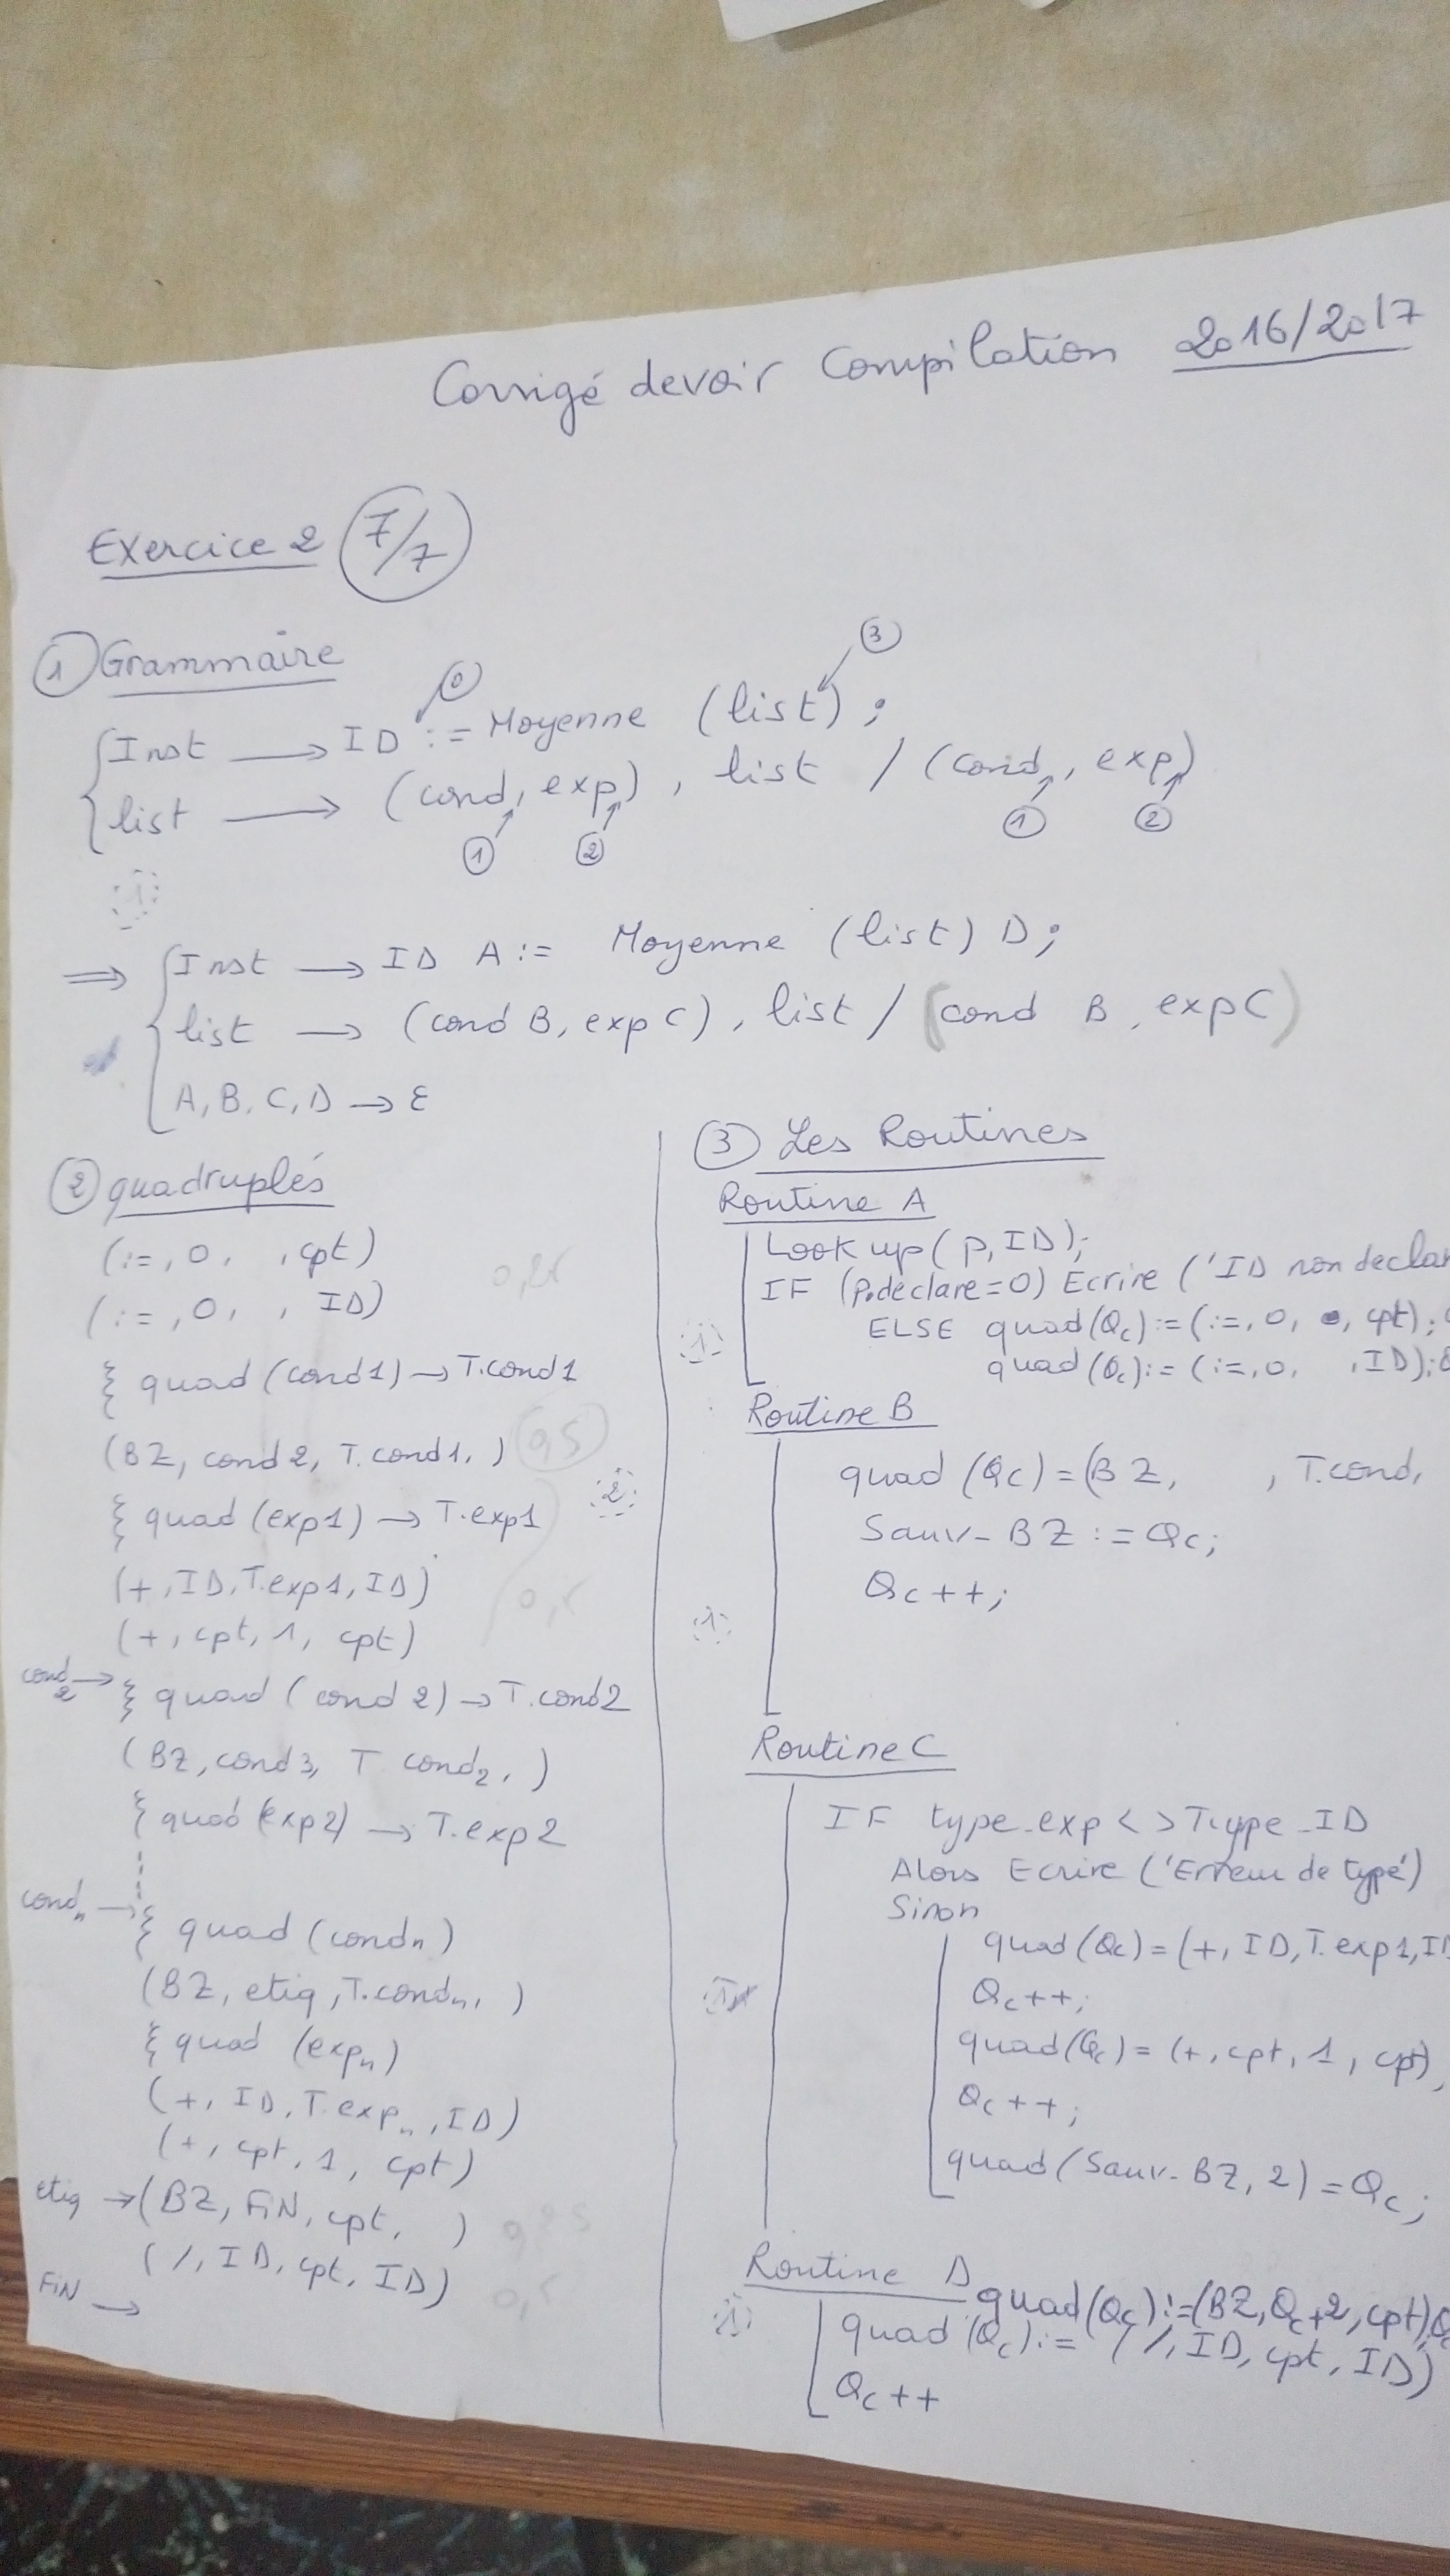 Corrigé devoir Compilation 2016/2017
Exercice 2 7/7
1 Grammaire
0
3
Inst → ID := Moyenne (list) ;
list → (cond, exp), list / (cond, exp)
1 2 1 2
1
⇒ Inst → ID A := Moyenne (list) D;
list → (cond B, exp C), list / (cond B, exp C)
A, B, C, D → ε
2 quadruplés
(:=, 0, , cpt)
(:=, 0, , ID)
{ quad (cond1) → T.cond1
(BZ, cond2, T.cond1, ) 0,5
2
{ quad (exp1) → T.exp1
(+, ID, T.exp1, ID)
(+, cpt, 1, cpt)
cond2 → { quad (cond 2) → T.cond2
(BZ, cond3, T cond2, )
{ quad (exp2) → T.exp2
condn → { quad (condn)
(BZ, etiq, T.condn, )
{ quad (expn)
(+, ID, T.expn, ID)
(+, cpt, 1, cpt)
etiq → (BZ, FiN, cpt, )
(/, ID, cpt, ID)
FiN →
3 Les Routines
Routine A
Look up (p, ID);
IF (p.declare=0) Ecrire ('ID non declar
1 ELSE quad(Qc):=(:=, 0, , cpt);
quad (Qc):= (:=, 0, , ID);
Routine B
quad (Qc)=(BZ, , T.cond,
Sauv-BZ := Qc;
Qc++;
1
Routine C
IF type-exp < > Type-ID
Alors Ecrire ('Erreur de type')
Sinon
quad(Qc)=(+, ID, T.exp1, ID
Qc++;
quad(Qc) = (+, cpt, 1, cpt),
Qc++;
quad(Sauv-BZ, 2)=Qc;
Routine D quad(Qc):=(BZ, Qc+2, cpt);
1 quad (Qc):= (/, ID, cpt, ID)
Qc++